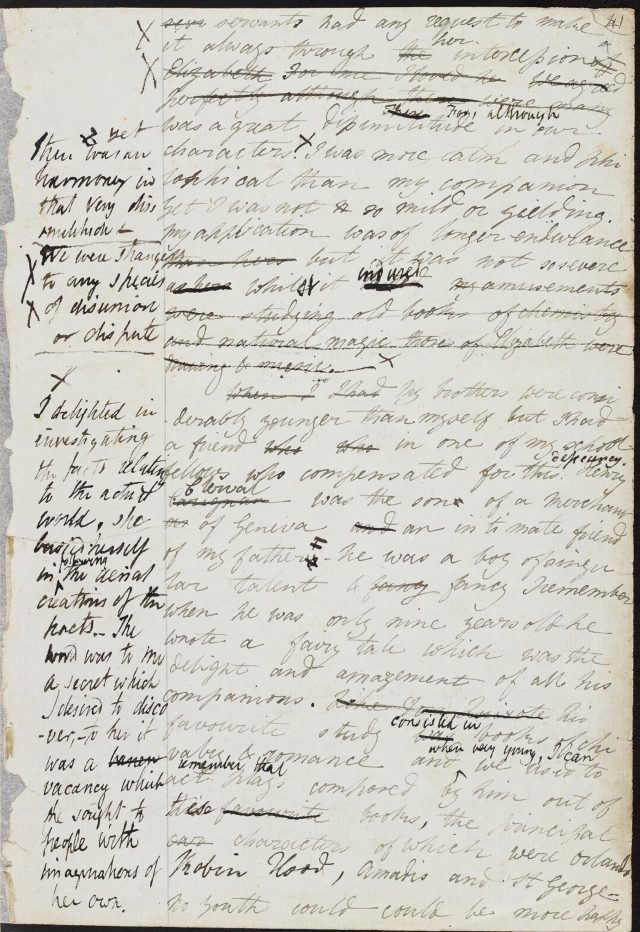 41
servants had any request to make
it always through the her intercession
Elizabeth
perfectly although there were many
was a great There dissimilitude For, although in our
characters. I was more calm and phi
losophical than my companion
yet I was not so mild or yielding.
my application was of longer endurance
than hers but it was not so severe
as hers whilst it endured my amusements
were studying old books of chemistry
and natural magic those of Elizabeth were
drawing & music.
when I had My brothers were consi
derably younger than myself but I had
a friend who who in one of my school
fellows who compensated for this deficiency. Henry
Clerval was the son of a merchant
of Geneva and an intimate friend
of my father - he was a boy of singu
lar talent & fancy fancy I remember
when he was only nine years old he
wrote a fairy tale which was the
delight and amazement of all his
companions. his
favourite study consisted in books of chi
valry & romance and when very young, I can we used to
remember that act plays composed by him out of
these favourite books, the principal
characters of which were Orlando
Robin Hood, Amadis and St George-
No youth could could be more happy
X yet
there was an
harmony in
that very dis
similitude
We were strangers
to any species
of disunion
or dispute
X
I delighted in
investigating
the facts relating
to the actual
world, she
busied herself
in following the aerial
creations of the
poets - The
world was to me
a secret which
I desired to disco
-ver, - to her it
was a
vacancy which
she sought to
people with
imaginations of
her own.